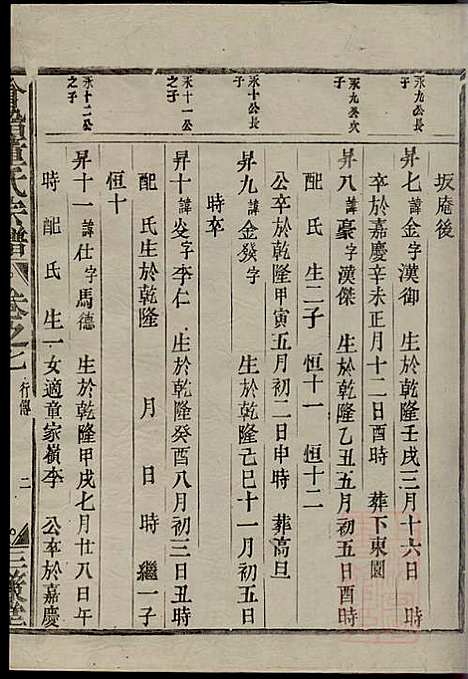 坂庵後
汞九公長子
昇七 諱金字漢御 生於乾隆壬戌三月十六日 時
卒於嘉慶辛未正月十二日酉時 葬下東園
汞九公次子
昇八 諱豪字漢傑 生於乾隆乙丑五月初五日酉時
配 氏 生二子 恒十一 恒十二
公卒於乾隆甲寅五月初二日申時 葬高旦
汞十公長子
昇九 諱金發字 生於乾隆己巳十一月初五日
時卒
汞十一公之子
昇十 諱 字李仁 生於乾隆癸酉八月初三日丑時
配 氏生於乾隆 月 日 時 繼一子
恒十
汞十二公之子
昇十一 諱仕字馬德 生於乾隆甲戌七月廿八日午
時 配 氏 生一女適童家嶺李 公卒於嘉慶
氏宗譜 卷之七 行傳 二